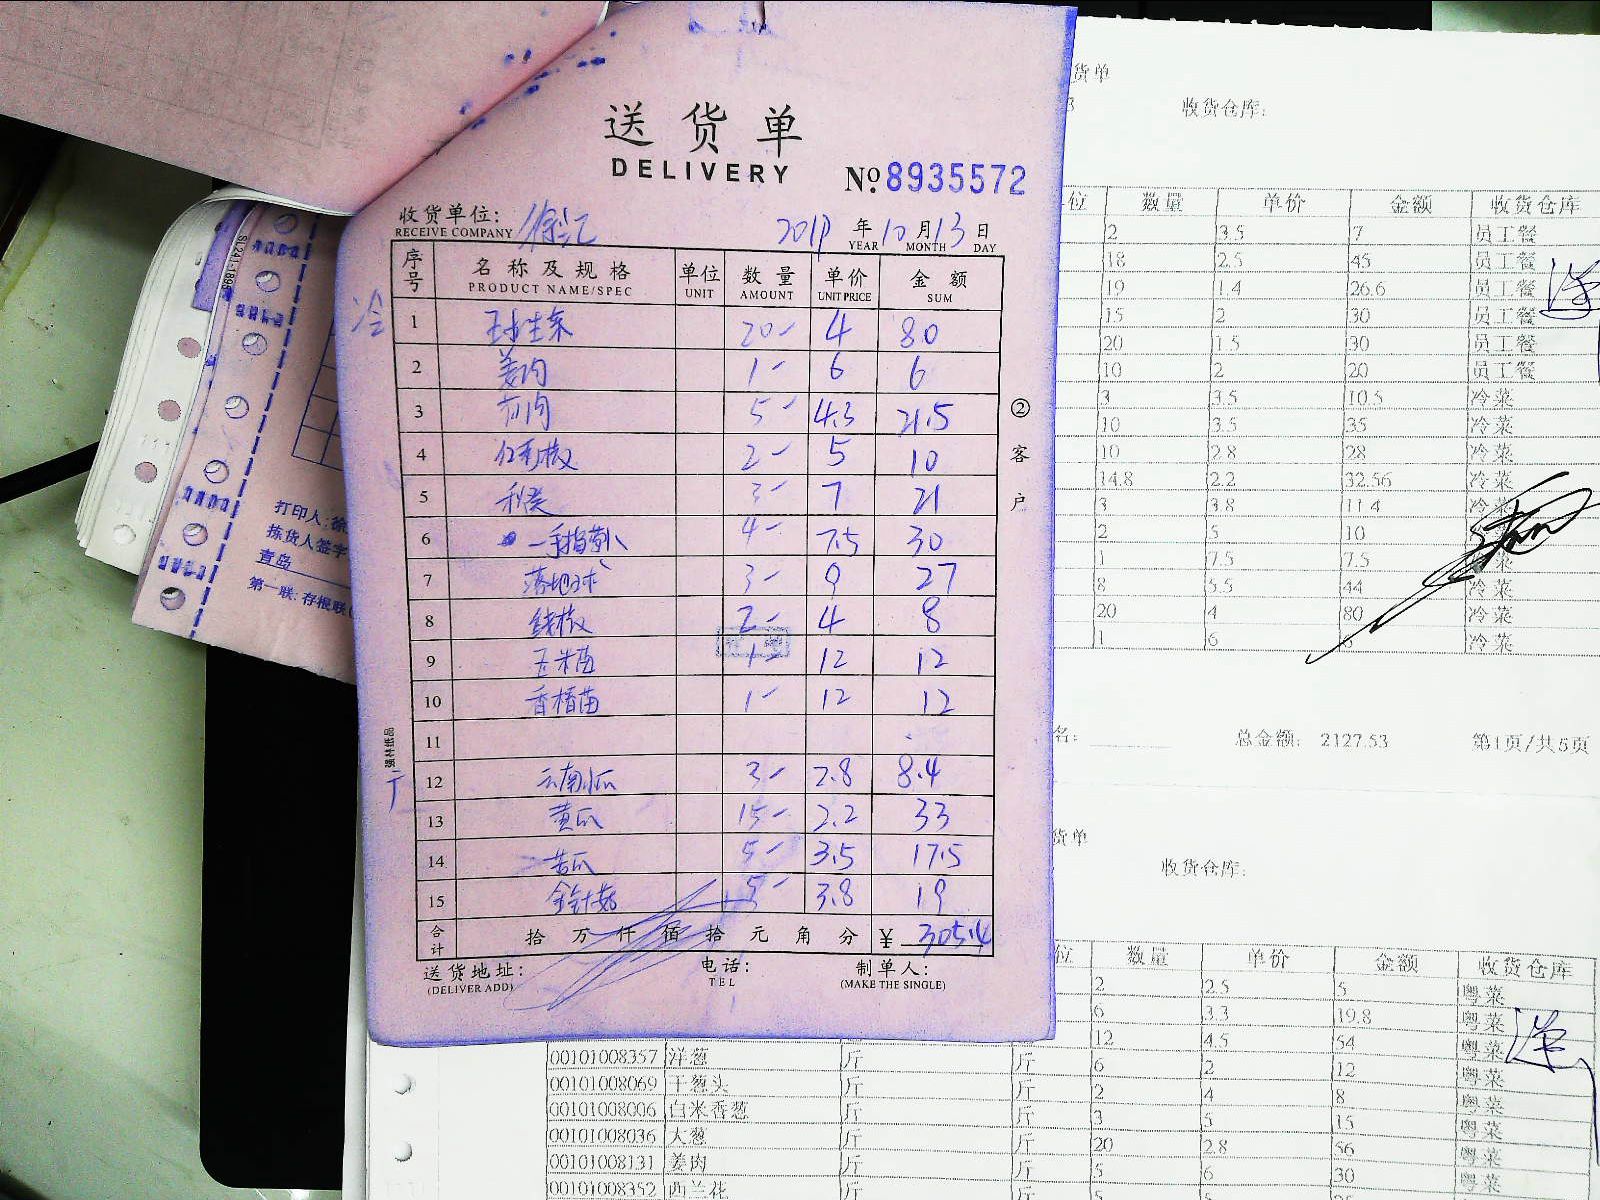 送货单
DELIVERY
№ 8935572
收货单位: 徐汇
RECEIVE COMPANY
年 10 月 13 日
YEAR MONTH DAY
序号 名称及规格 单位 数量 单价 金额
PRODUCT NAME/SPEC UNIT AMOUNT UNIT PRICE SUM
冷
1 20- 4 80
2 姜肉 1- 6 6
3 5- 4.3 21.5
4 2- 5 10
5 3- 7 21
6 4- 7.5 30
7 落地球 3- 9 27
8 2- 4 8
9 玉米苗 1- 12 12
10 香椿苗 1- 12 12
11
12 云南小瓜 3- 2.8 8.4
13 黄瓜 15- 2.2 33
14 苦瓜 5- 3.5 17.5
15 金针菇 5- 3.8 19
合计 拾 万 仟 佰 拾 元 角 分 ¥ 305.4
送货地址: 电话: 制单人:
(DELIVER ADD) TEL (MAKE THE SINGLE)
② 客户
强林纸品
SL241-1895
打印人: 徐
拣货人签字
青岛
第一联: 存根联(
货单
3 收货仓库:
位 数量 单价 金额 收货仓库
2 3.5 7 员工餐
18 2.5 45 员工餐
19 1.4 26.6 员工餐
15 2 30 员工餐
20 1.5 30 员工餐
10 2 20 员工餐
3 3.5 10.5 冷菜
10 3.5 35 冷菜
10 2.8 28 冷菜
14.8 2.2 32.56 冷菜
3 3.8 11.4 冷菜
2 5 10
1 7.5 7.5 菜
8 5.5 44 冷菜
20 4 80 冷菜
1 6 6 冷菜
名: 总金额: 2127.53 第1页/共5页
货单
收货仓库:
位 数量 单价 金额 收货仓库
2 2.5 5 粤菜
6 3.3 19.8 粤菜
12 4.5 54 粤菜
00101008357 洋葱 斤 斤 6 2 12 粤菜
00101008069 干葱头 斤 斤 2 4 8 粤菜
00101008006 白米香葱 斤 斤 3 5 15 粤菜
00101008036 大葱 斤 斤 20 2.8 56 粤菜
00101008131 姜肉 斤 斤 5 6 30 粤菜
00101008352 西兰花 斤 斤